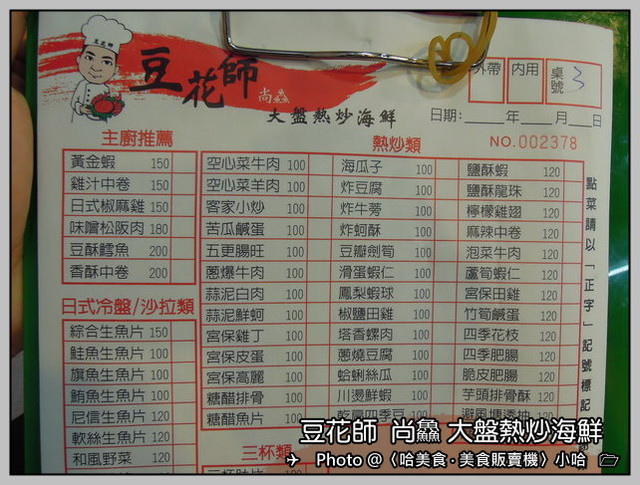 豆花師
豆花師
尚鱻
大盤熱炒海鮮
外帶 內用 桌號 3
日期： 年 月 日
主廚推薦
黃金蝦 150
雞汁中卷 150
日式椒麻雞 150
味噌松阪肉 180
豆酥鱈魚 200
香酥中卷 200
日式冷盤/沙拉類
綜合生魚片 150
鮭魚生魚片 100
旗魚生魚片 100
鮪魚生魚片 100
尼信生魚片 120
軟絲生魚片 120
和風野菜 120
熱炒類
NO.002378
空心菜牛肉 100 海瓜子 100 鹽酥蝦 120
空心菜羊肉 100 炸豆腐 100 鹽酥龍珠 120
客家小炒 100 炸牛蒡 100 檸檬雞翅 120
苦瓜鹹蛋 100 炸蚵酥 100 麻辣中卷 120
五更腸旺 100 豆瓣劍筍 100 泡菜牛肉 120
蔥爆牛肉 100 滑蛋蝦仁 100 蘆筍蝦仁 120
蒜泥白肉 100 鳳梨蝦球 100 宮保田雞 120
蒜泥鮮蚵 100 椒鹽田雞 100 竹筍鹹蛋 120
宮保雞丁 100 塔香螺肉 100 四季花枝 120
宮保皮蛋 100 蔥燒豆腐 100 四季肥腸 120
宮保高麗 100 蛤蜊絲瓜 100 脆皮肥腸 120
糖醋排骨 100 川燙鮮蝦 100 芋頭排骨酥 120
糖醋魚片 100 乾扁四季豆 100 避風塘透抽 120
三杯類
點菜請以「正字」記號標記
豆花師 尚鱻 大盤熱炒海鮮
Photo @〈哈美食·美食販賣機〉小哈